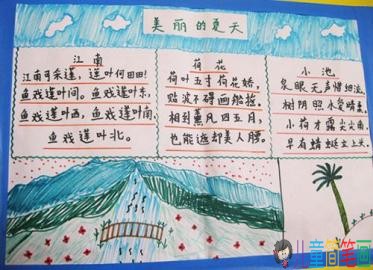 美丽的夏天
江南
江南可采莲，莲叶何田田！
鱼戏莲叶间。鱼戏莲叶东，
鱼戏莲叶西，鱼戏莲叶南，
鱼戏莲叶北。
荷花
荷叶五寸荷花娇，
贴波不碍画船摇。
相到薰风四五月，
也能遮却美人腰。
小池
泉眼无声惜细流，
树阴照水爱晴柔。
小荷才露尖尖角，
早有蜻蜓立上头。
儿童简笔画